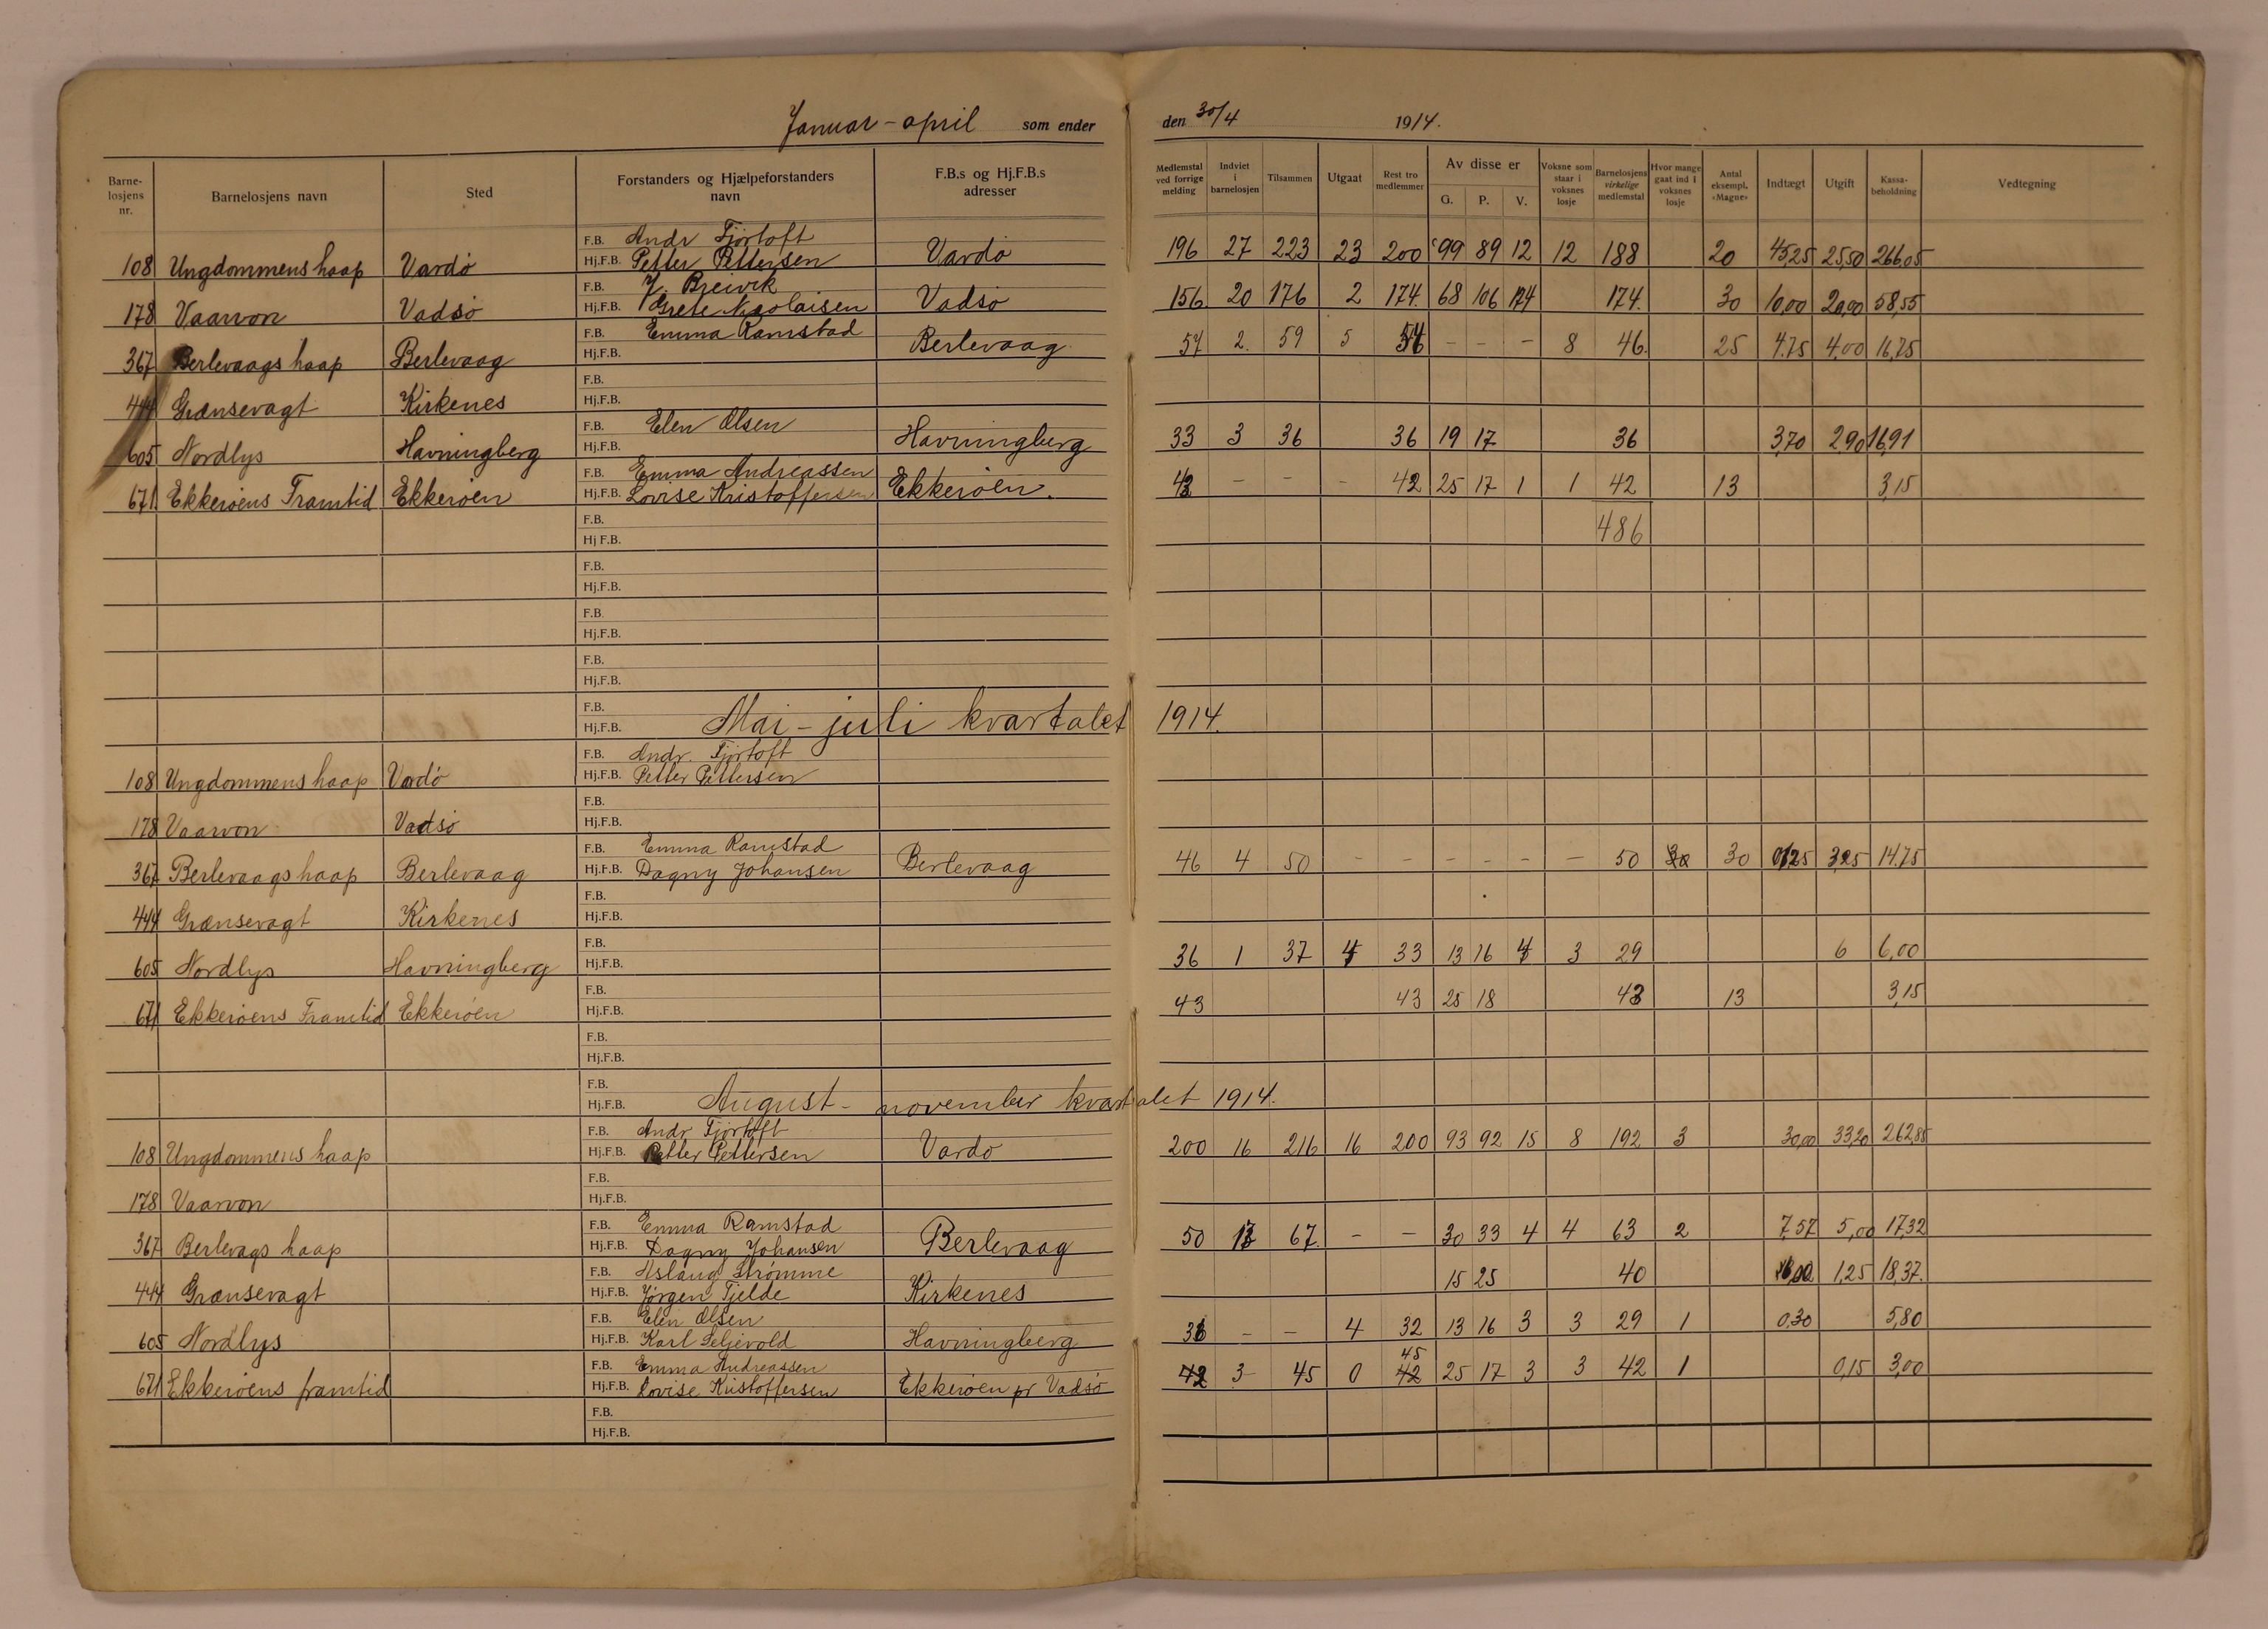 Januar - april som ender den 30/4 1914.
Barne-losjens nr. Barnelosjens navn Sted Forstanders og Hjælpeforstanders navn F.B.s og Hj.F.B.s adresser Medlemstal ved forrige melding Indviet i barnelosjen Tilsammen Utgaat Rest tro medlemmer Av disse er G. P. V. Voksne som staar i voksnes losje Barnelosjens virkelige medlemstal Hvor mange gaat ind i voksnes losje Antal eksempl. «Magne» Indtægt Utgift Kassa-beholdning Vedtegning
F.B. Andr Fjørtoft
108 Ungdommens haap Vardø Hj.F.B. Petter Pettersen Vardø 196 27 223 23 200 99 89 12 12 188 20 45,25 25,50 266,05
F.B. J. Breivik
178 Vaarvon Vadsø Hj.F.B. Grete Nicolaisen Vadsø 156 20 176 2 174 68 106 174 174 30 10,00 20,00 58,55
F.B. Emma Ramstad
367 Berlevaags haap Berlevaag Hj.F.B. Berlevaag 57 2 59 5 54 - - - 8 46 25 4.75 4,00 16,75
F.B.
444 Grænsevagt Kirkenes Hj.F.B.
F.B. Elen Olsen
605 Nordlys Havningberg Hj.F.B. Havningberg 33 3 36 36 19 17 36 3,70 2,90 16,91
F.B. Emma Andreassen
671 Ekkerøens Framtid Ekkerøen Hj.F.B. Lovise Kristoffersen Ekkerøen. 43 - - - 42 25 17 1 1 42 13 3,15
F.B. 486
Hj F.B.
F.B.
Hj.F.B.
F.B.
Hj.F.B.
F.B.
Hj.F.B.
F.B.
Hj.F.B. Mai - juli kvartalet 1914.
F.B. Andr. Fjørtoft
108 Ungdommens haap Vardø Hj.F.B. Petter Pettersen
F.B.
178 Vaarvon Vadsø Hj.F.B.
F.B. Emma Ramstad
367 Berlevaags haap Berlevaag Hj.F.B. Dagny Johansen Berlevaag 46 4 50 - - - - - - 50 30 3,25 14.75
F.B.
444 Grænsevagt Kirkenes Hj.F.B.
F.B.
605 Nordlys Havningberg Hj.F.B. 36 1 37 4 33 13 16 4 3 29 6 6,00
F.B.
671 Ekkerøens Framtid Ekkerøen Hj.F.B. 43 43 25 18 43 13 3,15
F.B.
Hj.F.B.
F.B.
Hj.F.B. August - november kvartalet 1914.
F.B. Andr Fjørtoft
108 Ungdommens haap Hj.F.B. Petter Pettersen Vardø 200 16 216 16 200 93 92 15 8 192 3 30,00 33,20 262,85
F.B.
178 Vaarvon Hj.F.B.
F.B. Emma Ramstad
367 Berlevags haap Hj.F.B. Dagny Johansen Berlevaag 50 17 67. - - 30 33 4 4 63 2 7,57 5,00 17,32
F.B. Aslaug Strømme
444 Grænsevagt Hj.F.B. Jørgen Fjelde Kirkenes 15 25 40 1,25 18,37.
F.B. Elen Olsen
605 Nordlys Hj.F.B. Karl Seljevold Havningberg 36 - - 4 32 13 16 3 3 29 1 0,30 5,80
F.B. Emma Andreassen 45
671 Ekkerøens framtid Hj.F.B. Lovise Kristoffersen Ekkerøen pr Vadsø 42 3 45 0 42 25 17 3 3 42 1 0,15 3,00
F.B.
Hj.F.B.